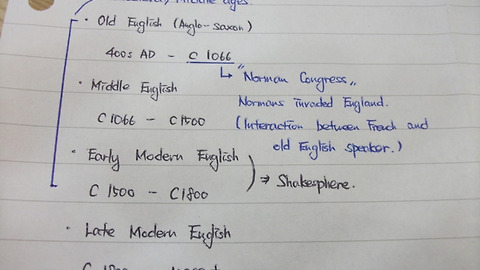 Middle ages.
• Old English (Anglo-saxon)
400s AD - C 1066
"Norman Congress,,
• Middle English
Normans invaded England.
C 1066 - C1500
(Interaction between French and
old English speaker.)
• Early Modern English
⇒ Shakesphere.
C 1500 - C1800
• Late Modern English